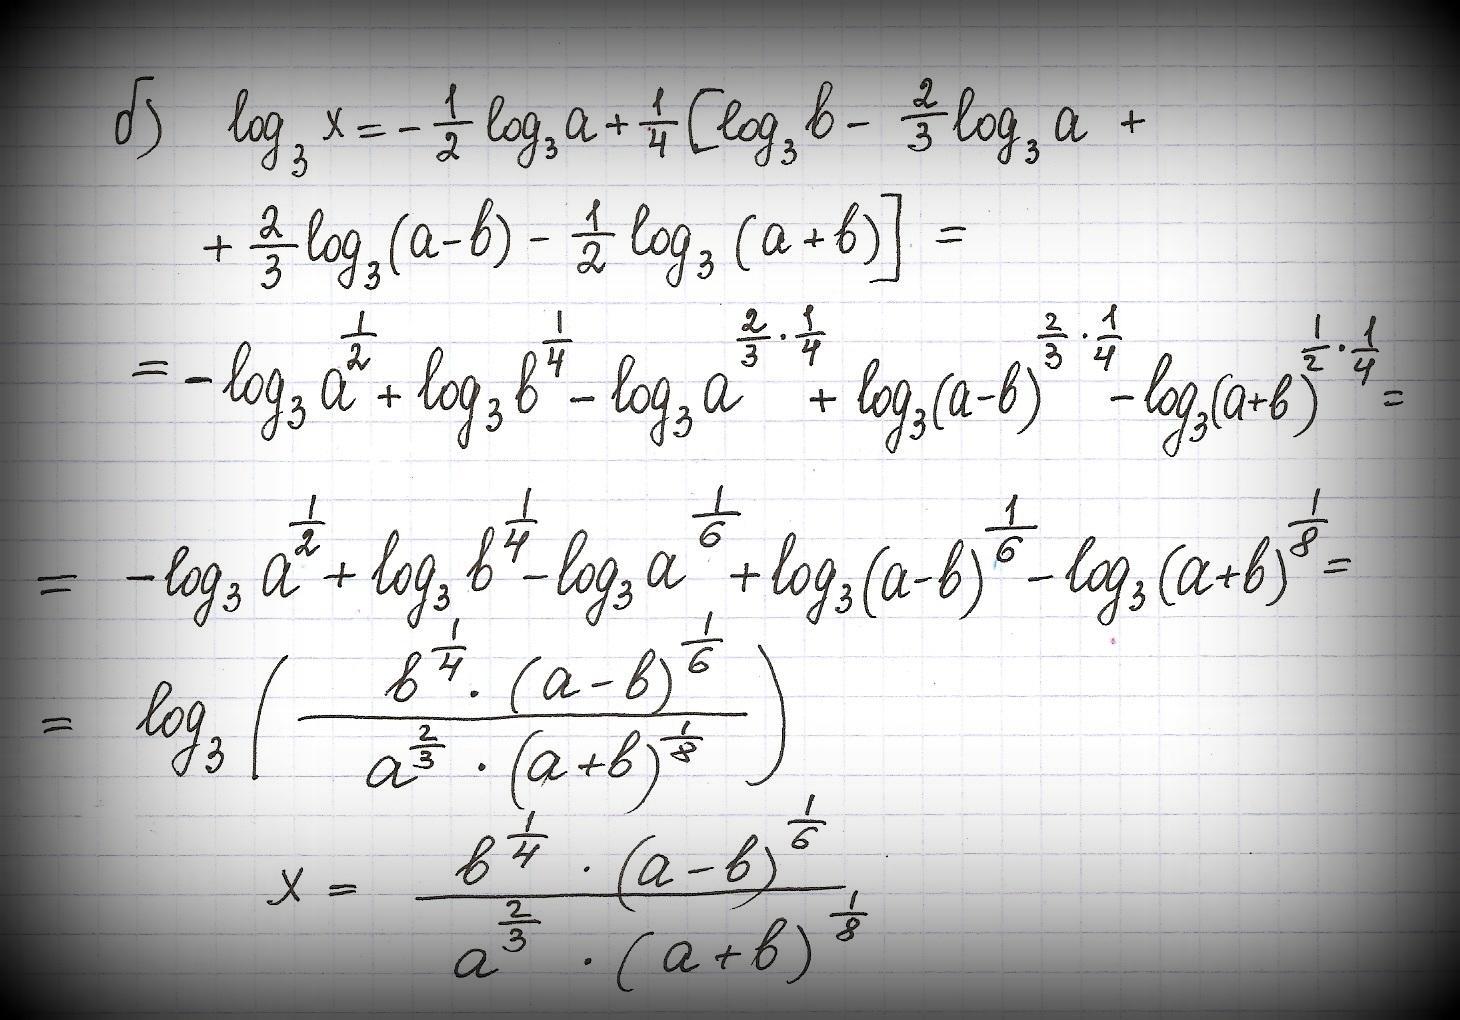 б) log₃ x = - 1/2 log₃ a + 1/4 [log₃ b - 2/3 log₃ a +
+ 2/3 log₃ (a-b) - 1/2 log₃ (a+b)] =
= - log₃ a^(1/2) + log₃ b^(1/4) - log₃ a^(2/3 · 1/4) + log₃ (a-b)^(2/3 · 1/4) - log₃ (a+b)^(1/2 · 1/4) =
= - log₃ a^(1/2) + log₃ b^(1/4) - log₃ a^(1/6) + log₃ (a-b)^(1/6) - log₃ (a+b)^(1/8) =
= log₃ ( (b^(1/4) · (a-b)^(1/6)) / (a^(2/3) · (a+b)^(1/8)) )
x = (b^(1/4) · (a-b)^(1/6)) / (a^(2/3) · (a+b)^(1/8))